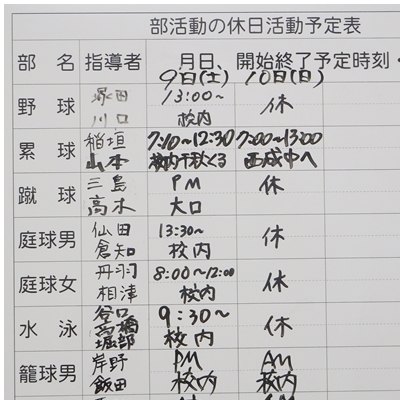 部活動の休日活動予定表
部 名 指導者 月日、開始終了予定時刻・
9日(土) 10日(日)
野 球 塚田 川口 13:00~ 校内 休
累 球 稲垣 山本 7:10~12:30 校内 7:00~13:00 西成中へ
蹴 球 三島 高木 PM 大口 休
庭球男 仙田 倉知 13:30~ 校内 休
庭球女 丹羽 相津 8:00~12:00 校内 休
水 泳 谷口 高橋 堀部 9:30~ 校内 休
籠球男 岸野 飯田 PM 校内 AM 校内